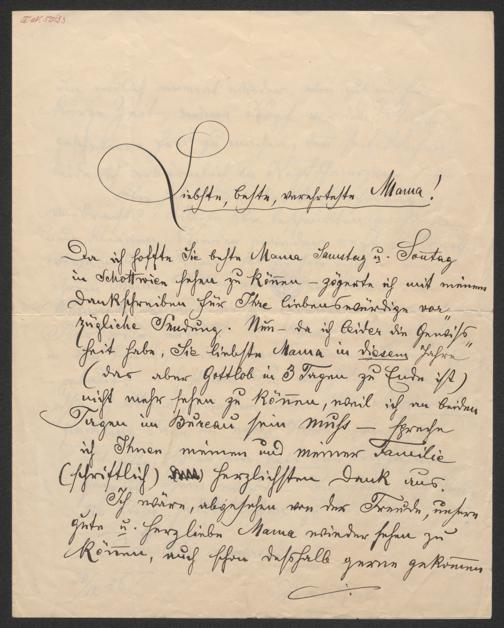 Liebste, beste, verehrteste Mama!
Da ich hoffte Sie beste Mama Samstag u. Sontag
in Schottwien sehen zu können – zögerte ich mit meinem
Dankschreiben für Ihre liebenswürdige vor„
zügliche Sendung. Nun – da ich leider die Gewiss„
heit habe, Sie liebste Mama in diesem „Jahre“
(das aber Gottlob in 3 Tagen zu Ende ist)
nicht mehr sehen zu können, weil ich an beiden
Tagen im Bureau sein muss – spreche
ich Ihnen meinen und meiner Familie
(schriftlich) herzlichsten Dank aus.
Ich wäre, abgesehen von der Freude, unsere
gute u. herzliebe Mama wieder sehen zu
können, auch schon desshalb gerne gekommen